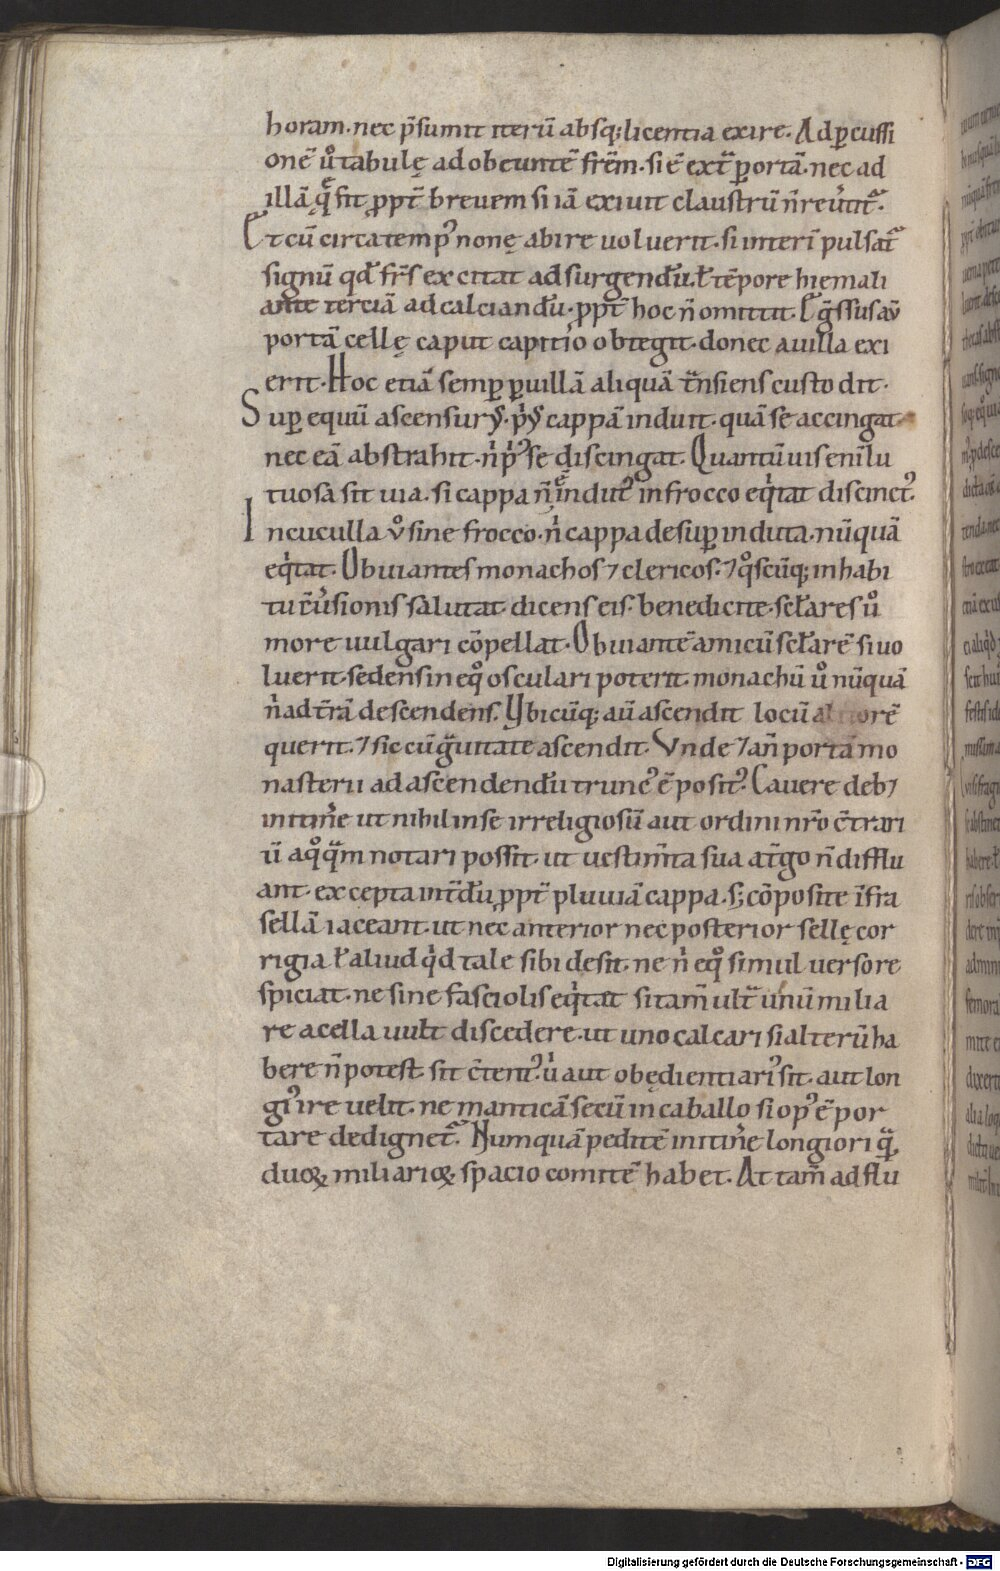 horam. nec p̄sumit iterū absq; licentia exire. Ad ꝑcussi
onē ů tabulę ad obeuntē frēm. si ē ext̄ portā. nec ad
illā q̄ fit ꝓpt̄ breuem si iā exiuit claustrū n̄ reu̓tit᷑.
Et cū circa temp᷒ nonę abire uoluerit. si interī pulsat᷑
signū qd̄ fr̄s excitat ad surgendū. ł tēpore hiemali
ante terciā ad calciandū. ꝓpt̄ hoc n̄ omittit. Eg̃ssus aū
portā cellę caput capitio obtegit. donec a uilla exi
erit. Hoc etiā semꝑ ꝑ uillā aliquā t̃nsiens custodit.
Suꝑ equū ascensur᷒. p̓᷒ cappā induit. quā se accingat
nec eā abstrahit. n̓ p̓᷒ se discingat. Quantūuis enī lu
tuosa sit uia. si cappa n̄ ē indut᷒ in frocco eq̓tat discinct᷒.
In cuculla v̊ sine frocco. n̓ cappa desuꝑ induta. nūquā
eq̓tat. Obuiantes monachos ⁊ clericos. ⁊ q̊scūq; in habi
tu c̄u̓sionis salutat dicens eis. benedicite. scłares ů
more uulgari cōpellat. Obuiantē amicū scłarē si uo
luerit. sedens in eq̊ osculari poterit. monachū ů nūquā
n̓ ad t̄rā descendens. Vbicūq; aū ascendit locū altiorē
querit. ⁊ sic cū g̃uitate ascendit. Vnde ⁊ añ portā mo
nasterii ad ascendendū trunc᷒ ē posit᷒. Cauere deb⁊
in itin̓e ut nihil in se irreligiosū aut ordini nr̄o c̄trari
ū aq̊q̃m notari possit. ut uestim̄ta sua at̓go n̄ difflu
ant. excepta int̄dū ꝓpt̄ pluuiā cappa. s; cōposite īfra
sellā iaceant. ut nec anterior nec posterior sellę cor
rigia ł aliud q̓d tale sibi desit. ne n̓ eq̊ simul uerso re
spiciat. ne sine fasciolis eq̓tat si tam̄ ult̃ unū milia
re a cella uult discedere. ut uno calcari si alterū ha
bere n̄ potest sit c̄tent᷒. u̓ aut obędientiari᷒ sit. aut lon
gi᷒ ire uelit. ne manticā secū in caballo si op᷒ ē por
tare dedignet᷑. Numquā peditē in itin̓e longiori q̃
duoꝝ miliarioꝝ spacio comitē habet. At tam̄ ad flu
Digitalisierung gefördert durch die Deutsche Forschungsgemeinschaft - DFG